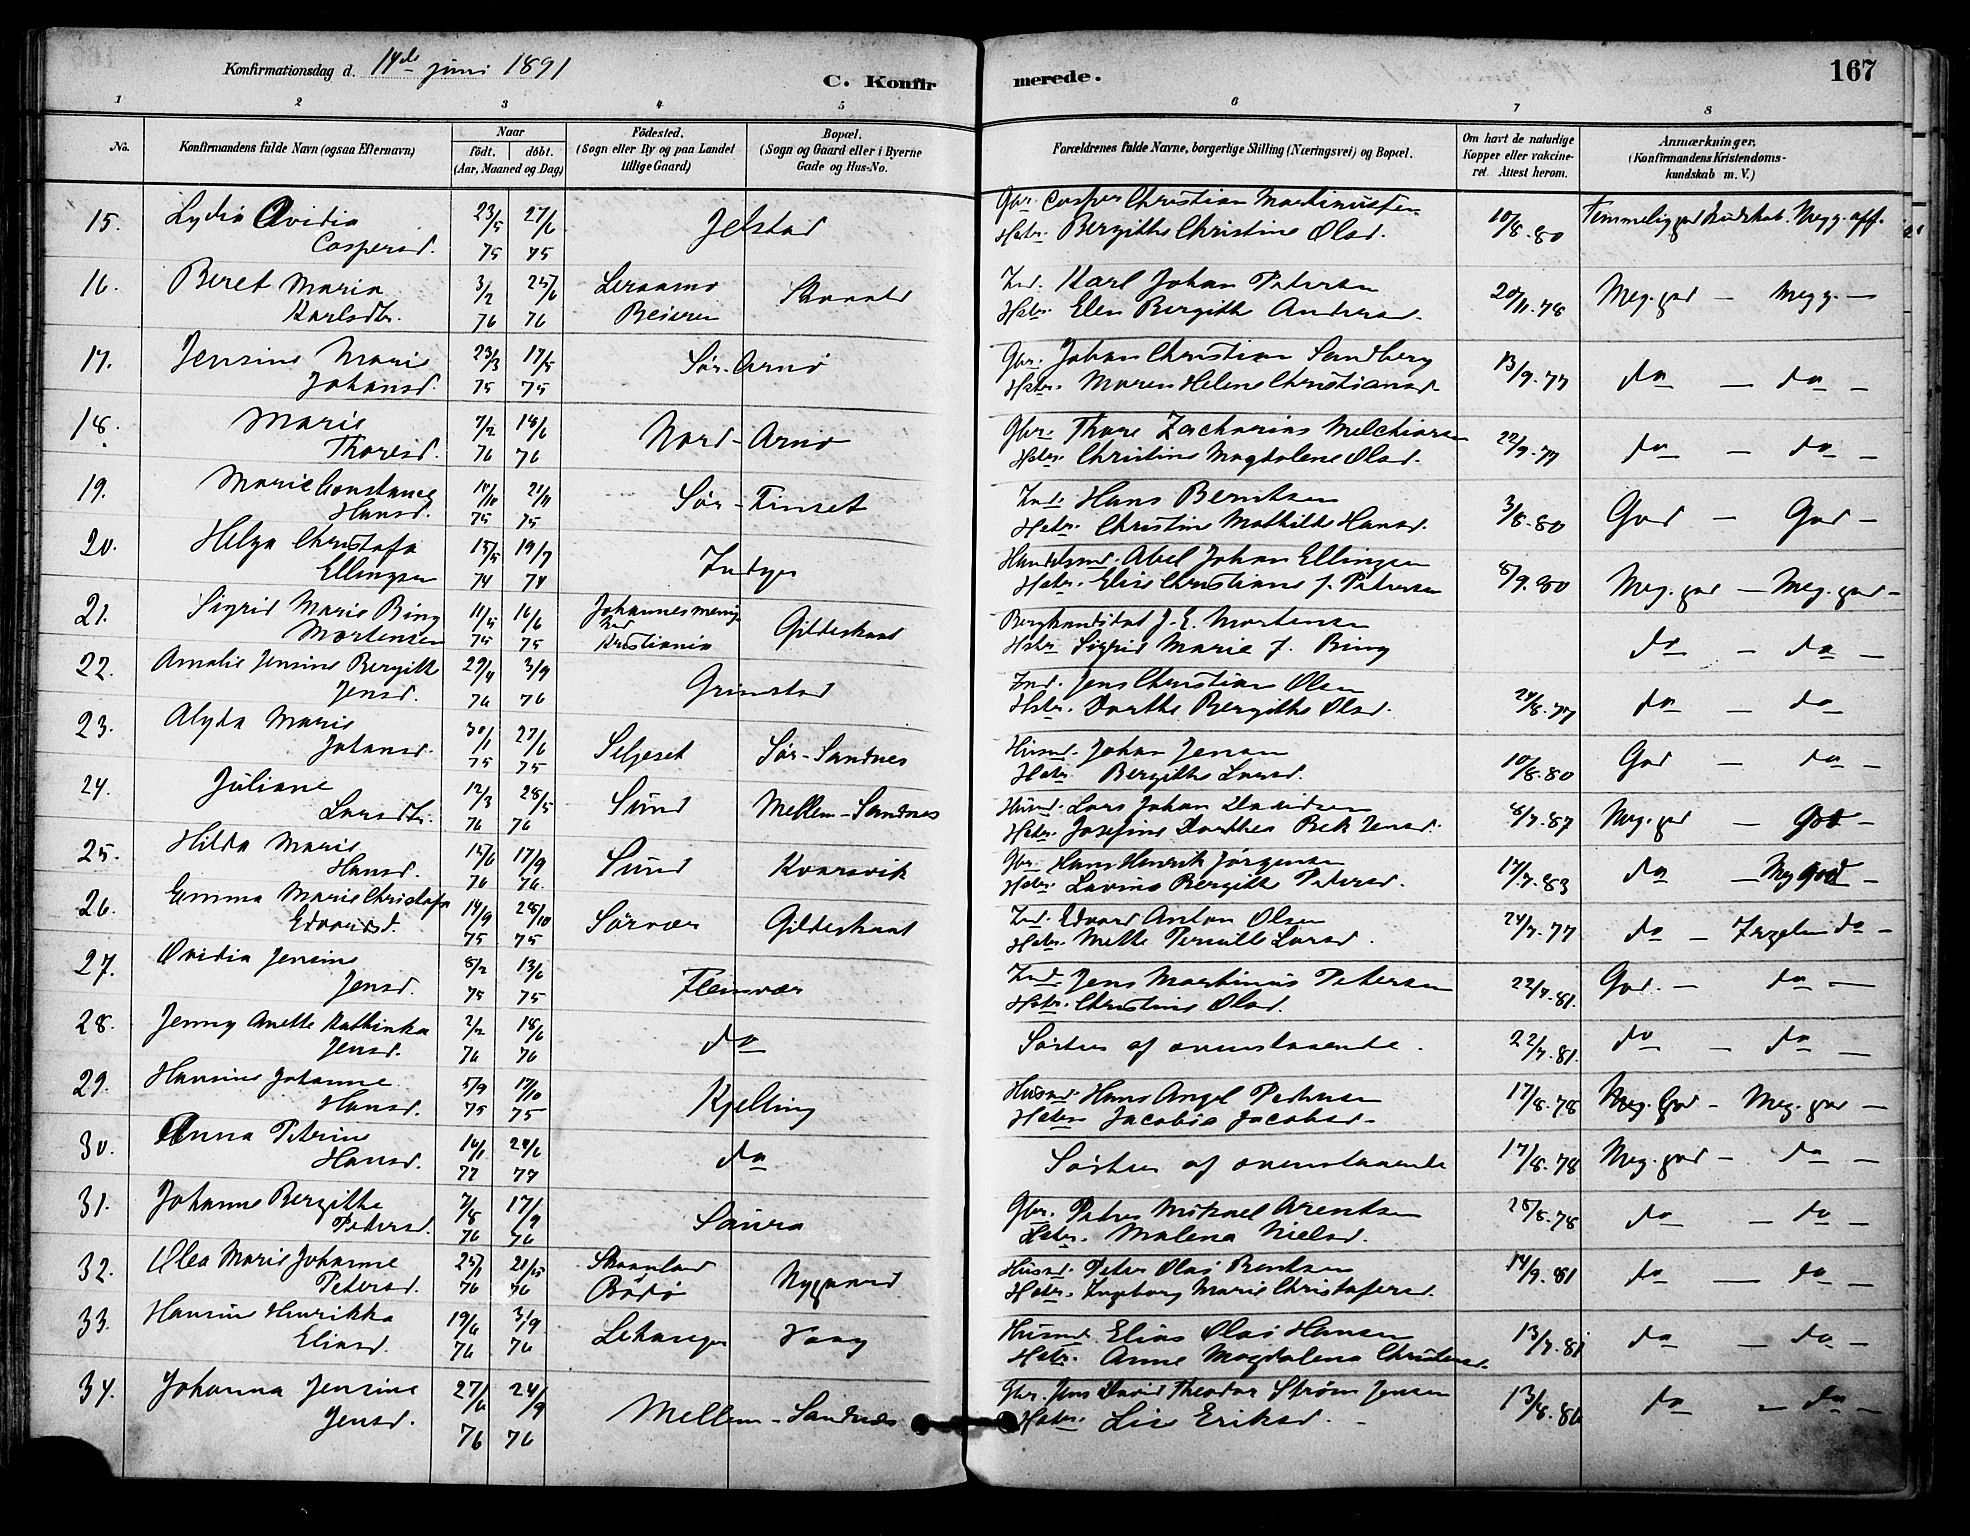 Konfirmationsdag d. 14de juni 1891
C. Konfir
merede.
167
1 2 3 4 5 6 7 8
No.
Konfirmandens fulde Navn (ogsaa Efternavn)
Naar
født. døbt.
(Aar, Maaned og Dag)
Födested.
(Sogn eller By og paa Landet tillige Gaard)
Bopæl.
(Sogn og Gaard eller i Byerne Gade og Hus-No.
Forældrenes fulde Navne, borgerlige Stilling (Næringsvei) og Bopæl.
Om havt de naturlige Kopper eller vakcineret. Attest herom.
Anmærkninger.
(Konfirmandens Kristendomskundskab m. V.)
15. Lydia Ovidia 23/5 27/6 Jelstad Gbr. Casper Christian Martinussen 10/8.80 Temmelig god Kundskab. Meg g. opf.
Caspersd. 75 75 Hstr. Bergitte Christine Olsd.
16. Beret Maria 3/2 25/6 Leraamo Ind. Karl Johan Petersen 20/11.78 Meg. god — Meg g. —
Karlsdtr. 76 76 Beieren Hstr. Elen Bergitte Andersd.
17. Jensine Marie 23/3 17/5 Sør-Arnø Gbr. Johan Christian Sandberg 13/9.77 do — do —
Johansd. 75 75 Hstr. Maren Helene Christiansd.
18. Marie 7/2 18/6 Nord-Arnø Gbr. Thore Zacharias Melchiorsen 22/9.77 do — do —
Thoresd. 76 76 Hstr. Christine Magdalene Olsd.
19. Marie Constance 21/11 Sør-Finset Ind. Hans Berntsen 3/8.80 God — God —
Hansd. 75 75 Hstr. Christine Mathilde Hansd.
20. Helga Christofa 15/5 19/7 Indyr Handelsmd. Abel Johan Ellingsen 8/9.80 Meg. god — Meg. god —
Ellingsen 74 74 Hstr. Elise Christiane f. Petersen
21. Sigrid Marie Bing 11/5 16/6 Gildeskaal Bergkandidat J. E. Mortensen do — do —
Mortensen 75 75 Kristiania Hstr. Sigrid Marie f. Bing
22. Amalie Jensine Bergitte 29/4 3/9 Grimstad Ind. Jens Christian Olsen 24/8.77 do — do
Jensd. 76 76 Hstr. Dorthe Bergitte Olsd.
23. Alyda Marie 30/1 27/6 Seljeset Sør-Sandnes Husmd. Johan Jensen 10/8.80 God do —
Johansd. 75 75 Hstr. Bergitte Larsd.
24. Juliane 12/3 28/5 Sund Mellem-Sandnes Husmd. Lars Johan Davidsen 8/7.87 Meg. god — God —
Larsdtr. 76 76 Hstr. Josefine Dorthea Bek Jensd.
25. Hilda Marie 15/6 17/9 Sund Kvarsvik Gbr. Hans Henrik Jørgensen 17/7.83 do — Meg god —
Hansd. 76 76 Hstr. Lavina Bergitte Petersd.
26. Emma Marie Christofa 14/9 28/10 Sørvær Gildeskaal Ind. Edvard Anton Olsen 24/7.77 do — do —
Edvardsd. 75 75 Hstr. Mette Pernille Larsd.
27. Ovidia Jensine 8/2 13/6 Fleinvær Ind. Jens Martinus Petersen 22/7.81. God. — do —
Jensd. 75 75 Hstr. Christine Olsd.
28. Jenny Anette Kathinka 2/2 18/6 do Søster af ovenstaaende. 22/7.81. do — do —
Jensd. 76 76
29. Hansine Johanne 5/9 17/10 Kjelling Husmd. Hans Angel Petersen 17/8.78 Meg. god — Meg. god —
Hansd. 75 75 Hstr. Jacobia Jacobsd.
30. Anna Petrine 16/1 24/6 do Søster af ovenstaaende 17/8.78 Meg. god — do —
Hansd. 77 77
31. Johanne Bergitte 7/8 17/9 Saura Gbr. Peter Mikael Arentsen 25/8.78 do — do —
Petersd. 76 76 Hstr. Malena Nielsd.
32. Olea Marie Johanne 25/1 Skaanland Nygaard Husmd. Peter Olai Berntsen 14/9.81 do — do —
Petersd. 76 76 Bodø Hstr. Ingeborg Marie Christofersd.
33. Hansine Henrikka 19/6 3/9 Lekanger Vaag Husmd. Elias Olai Hansen 13/7.81 do — do —
Eliasd. 76 76 Hstr. Anne Magdalena Christensd.
34. Johanna Jensine 27/6 24/9 Mellem-Sandnes Gbr. Jens David Theodor Strøm Jensen 13/8.86 do — do —
Jensd. 76 76 Hstr. Lise Eriksd. —